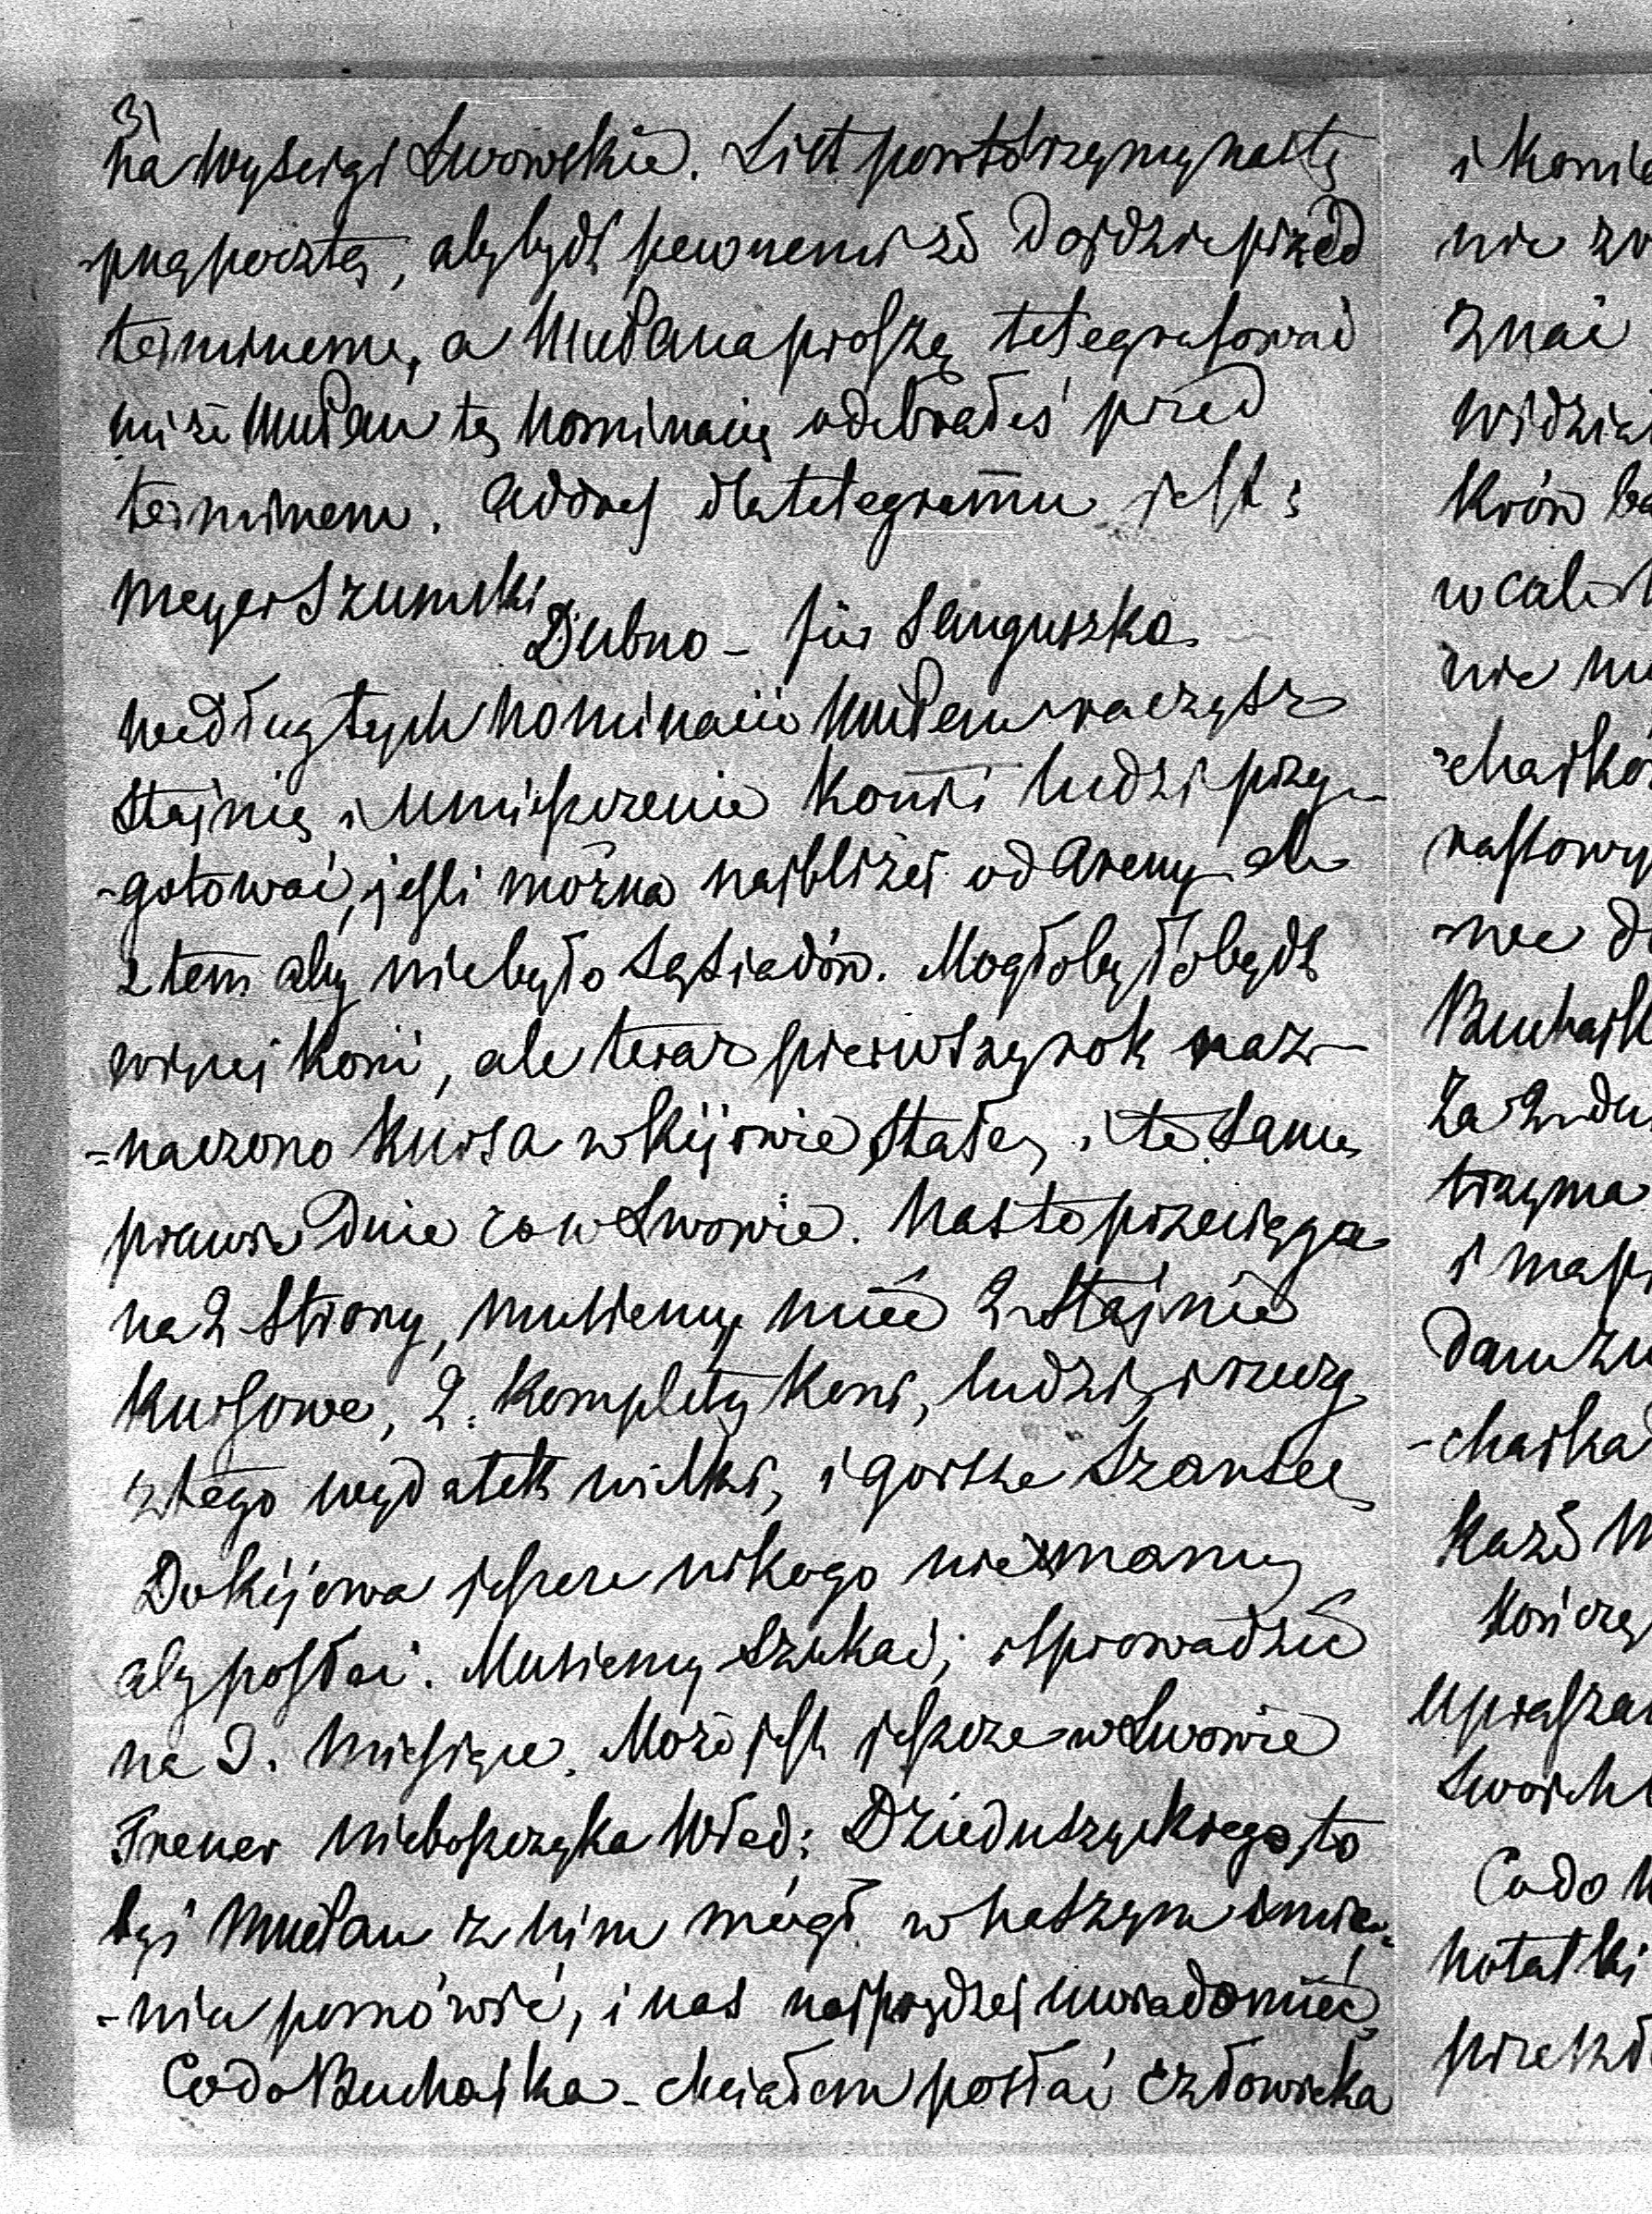 3)
na wyścigi Lwowskie. List powtórzymy nastę
-pną pocztą, aby bydź pewnemi że dojdzie przed
terminem, a WMPana proszę telegrafować
mi że WMPan tę nominacię odebrałeś przed
terminem. Addres dla telegramu jest:
Meyer Szumski
Dubno – für Sanguszko.
według tych nominacii WMPan raczysz
stajnię i umieszczenie koni i ludzi przy-
-gotować, jeśli można najbliżej od areny ale
z tem aby niebyło sąsiadów. Mogłoby to bydź
więcej koni, ale teraz pierwszy rok naz-
=naczono kursa w Kijowie stałe, i te same
prawie dnie co w Lwowie. Nas to przeciąga
na 2 strony, musiemy mieć 2 stajnie
kursowe, 2. komplety koni, ludzi, i rzeczy
z tego wydatek wielki, i gorsze szanse
Do Kijowa jeszcze nikogo nie mamy
aby posłać. Musiemy szukać; i sprowadzić
na miesiące. Może jest jeszcze w Lwowie
Trener nieboszczyka Wład: Dzieduszyckiego, to
byś WMPan z nim mógł w naszym imie-
-niu pomówić, i nas najprędzej uwiadomić.
Co do Buchajka – chciałem posłać człowieka
i koni
nie
znać
widzia
krów
wcale
nie
-chajkó
rastowy
-we
Buchajk
za 2
trzyma
i
Dam
-chajka
każe
kończy
upraszam
swoich
Co do
notatki